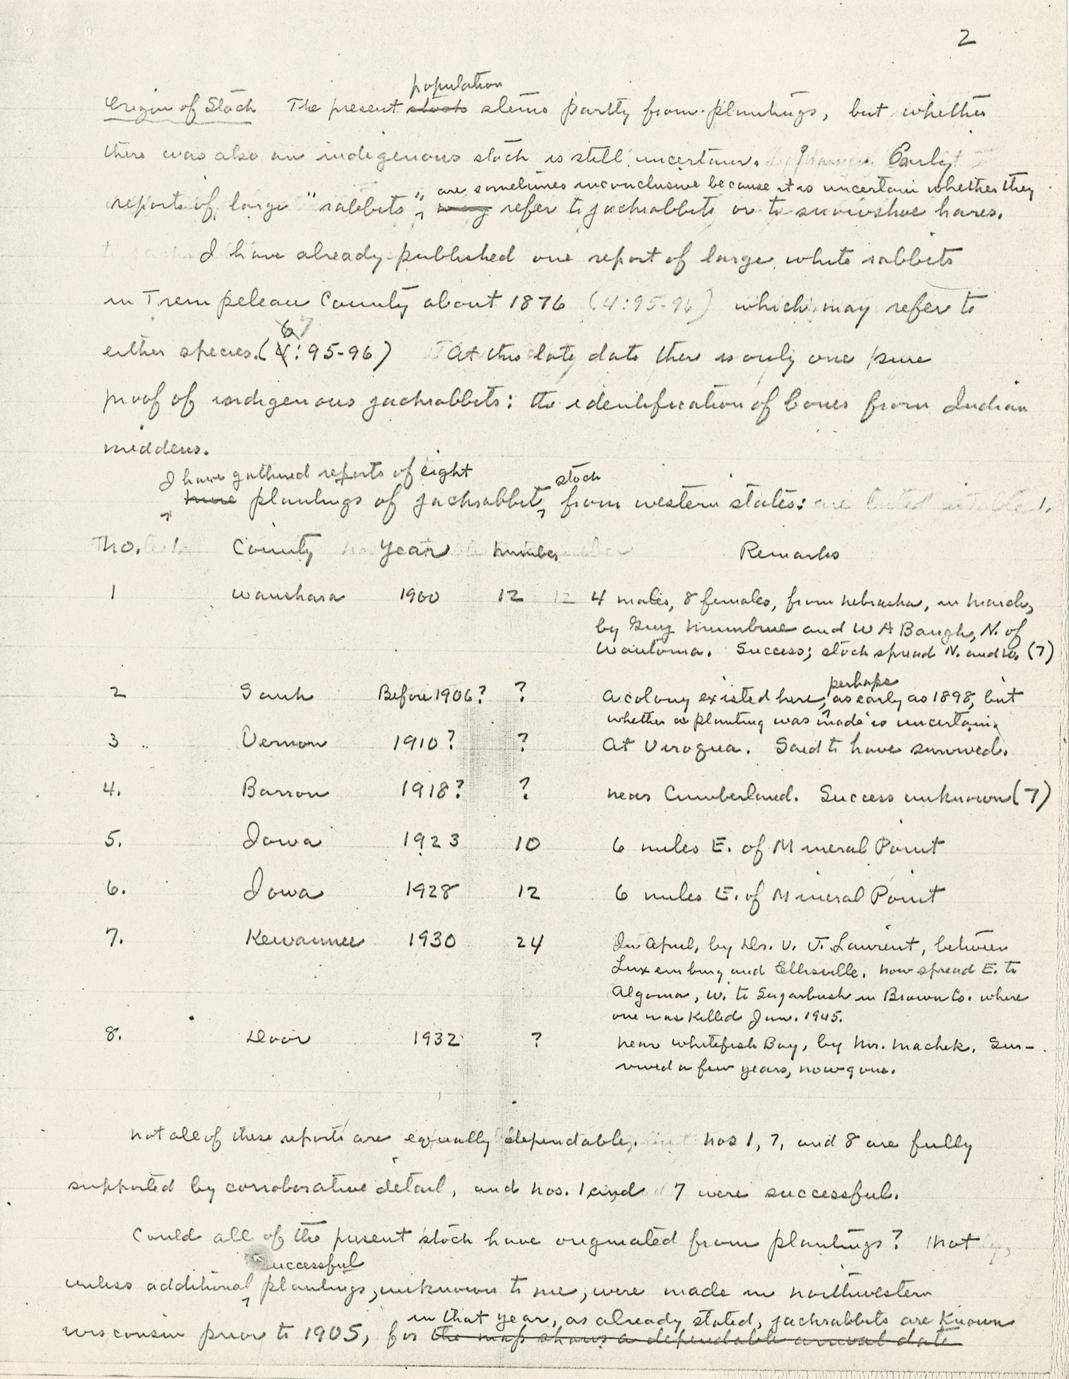 2
population
Origin of Stock The present stock stems partly from plantings, but whether
there was also an indigenous stock is still uncertain. Early
are sometimes inconclusive because it is uncertain whether they
reports of large "rabbits", may refer to jackrabbits or to snowshoe hares.
I have already published one report of large white rabbits
in Trempeleau County about 1876 (4:95-96) which may refer to
67
either species. (4:95-96) At this late date there is only one pure
proof of indigenous jackrabbits: the identification of bones from Indian
middens.
I have gathered reports of eight stock
plantings of jackrabbits, from western states: are listed in table 1.
No. County Year Number Remarks
1 Waushara 1900 12 12 4 males, 8 females, from Nebraska, in March,
by Guy and W A Baugh, N. of
Wautoma. Success; stock spread N. and W. (7)
perhaps
2 Sauk Before 1906? ? A colony existed here, as early as 1898, but
whether a planting was made is uncertain.
3 Vernon 1910? ? At Viroqua. Said to have survived.
4. Barron 1918? ? near Cumberland. Success unknown (7)
5. Iowa 1923 10 6 miles E. of Mineral Point
6. Iowa 1928 12 6 miles E. of Mineral Point
7. Kewaunee 1930 24 In April, by Drs. V. J. Laurent, between
Luxemburg and Ellisville. Now spread E. to
Algoma, W. to Sugarbush in Brown Co. where
one was killed Jan. 1945.
8. Door 1932 ? near Whitefish Bay, by Mr. Machek. Sur-
vived a few years, now gone.
Not all of these reports are equally dependable. Nos 1, 7, and 8 are fully
supported by corroborative detail, and nos. 1 and 7 were successful.
Could all of the present stock have originated from plantings? Not
successful
unless additional plantings, unknown to me, were made in northwestern
in that year, as already stated, jackrabbits are known
Wisconsin prior to 1905, for the map shows a dependable arrival date